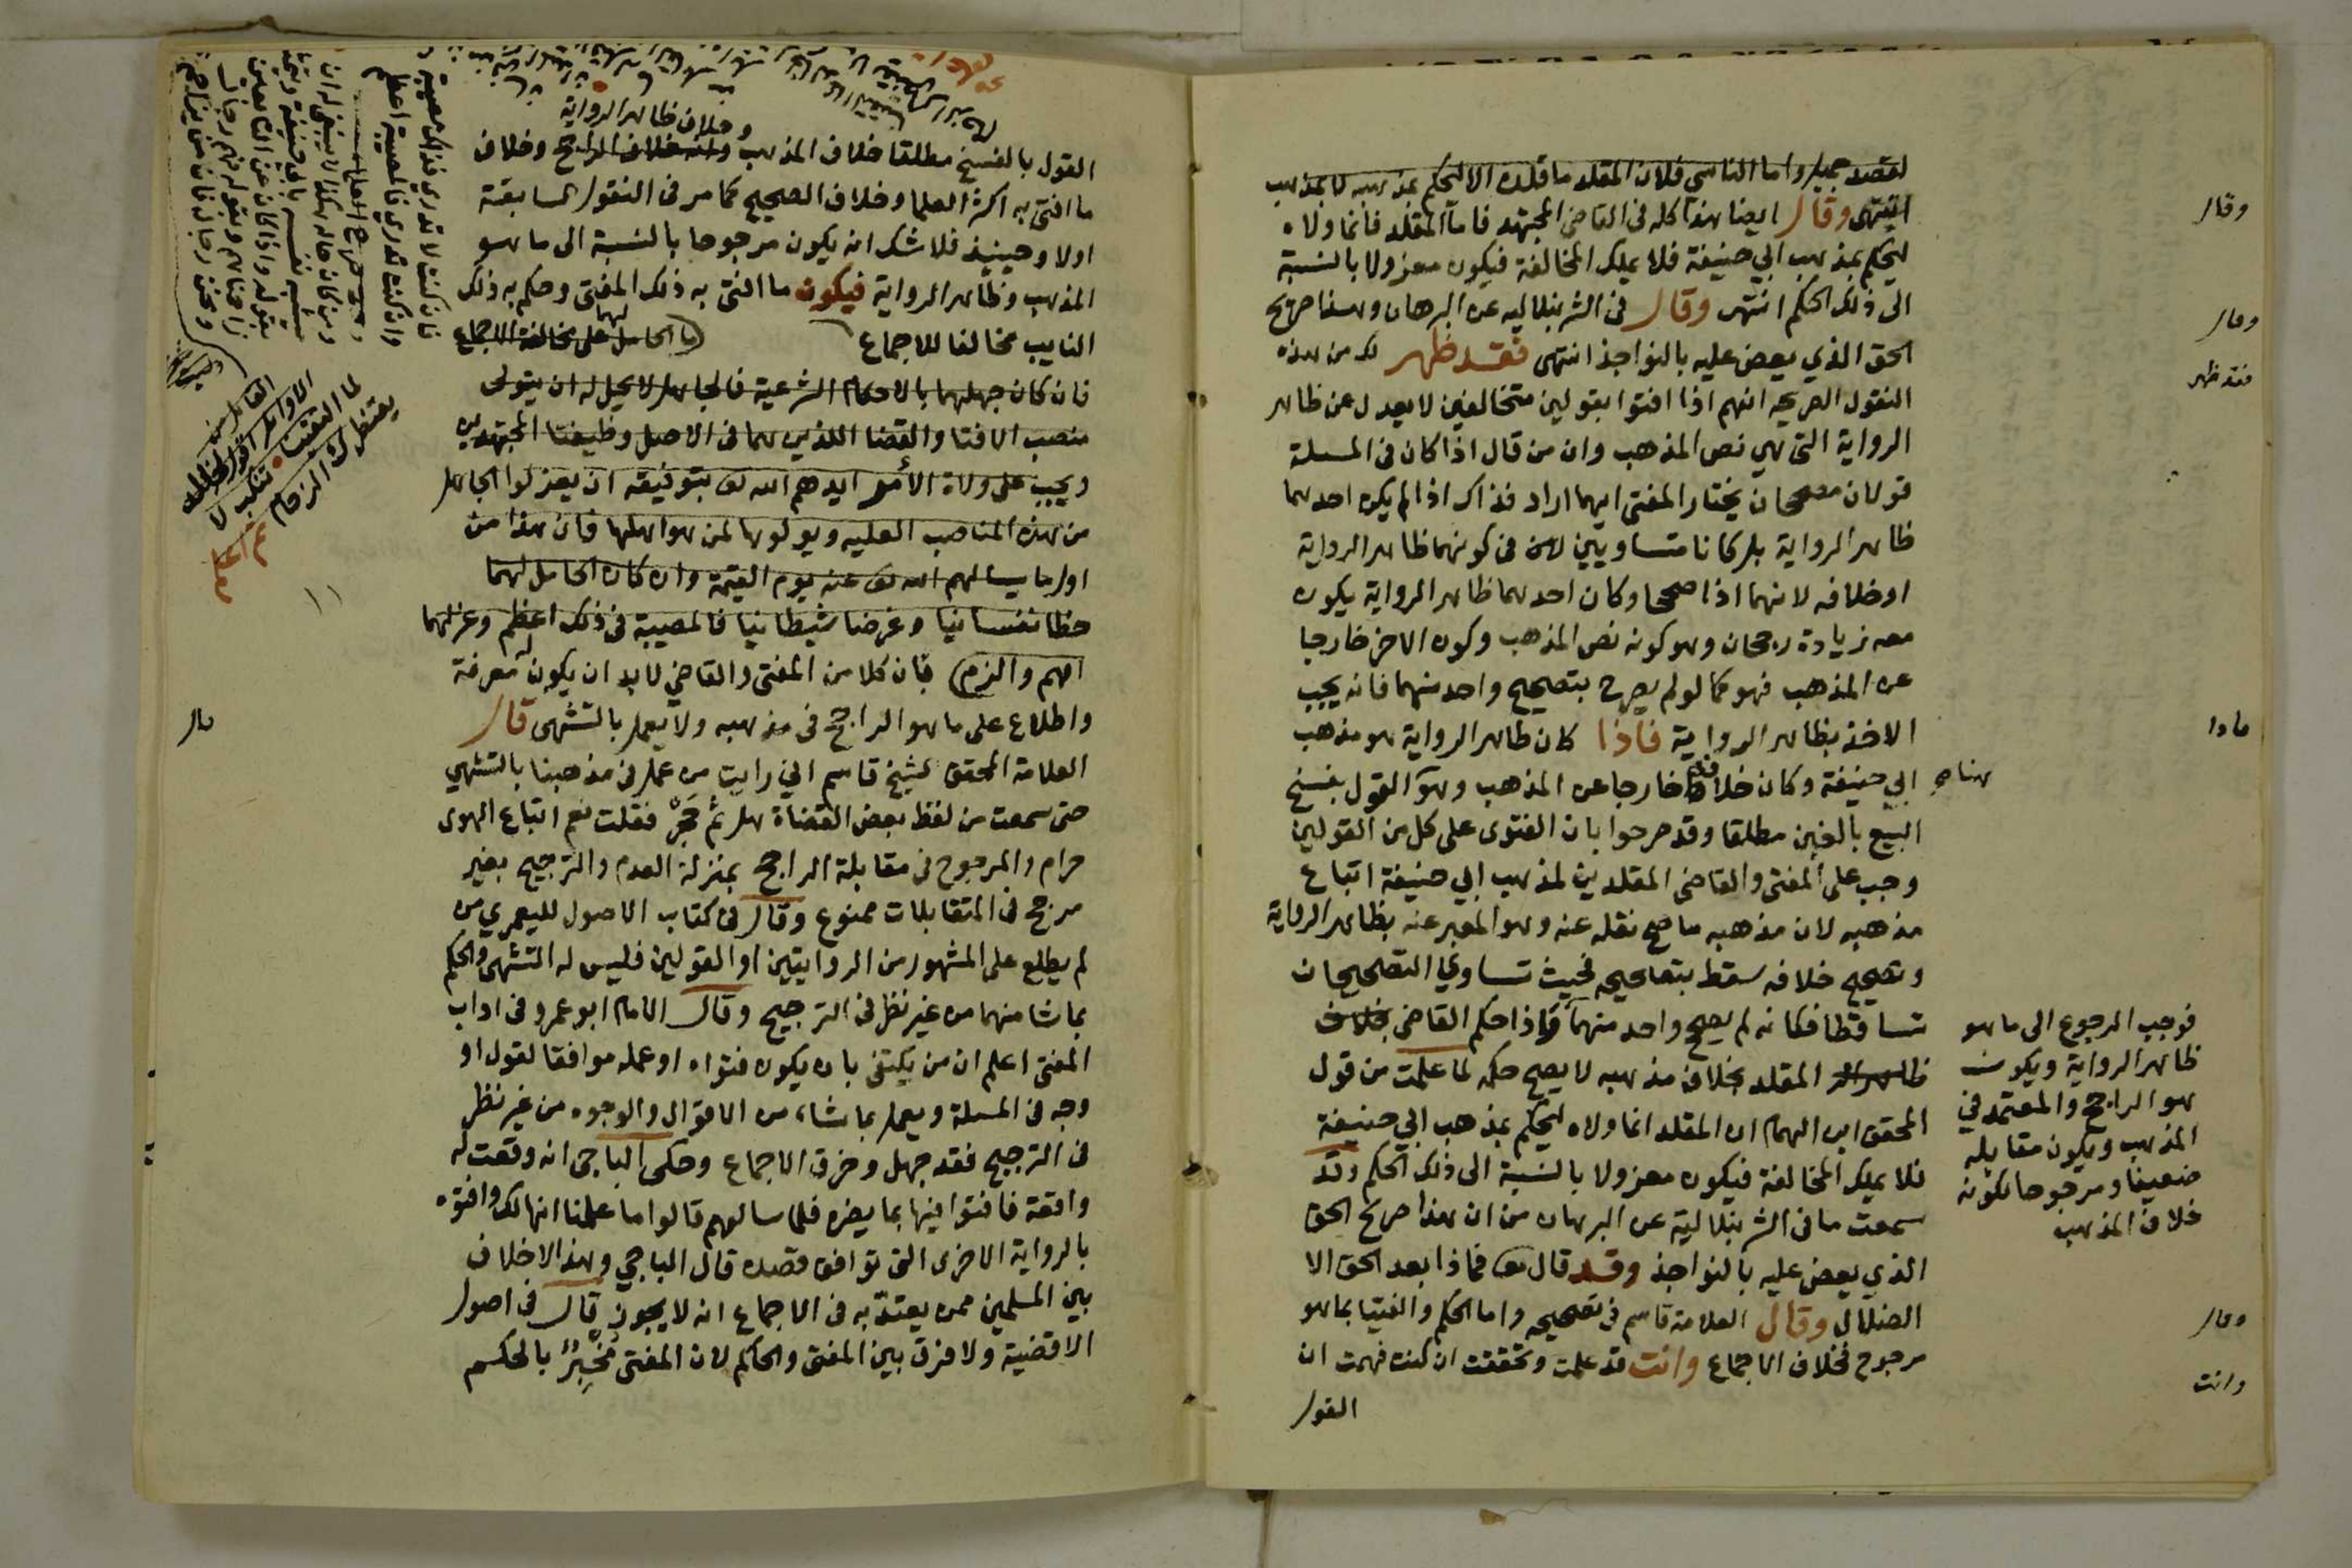 لقصد جميل واما الناسي فلان المقلد ما قلده الا ليحكم بمذهبه لا بمذهب
انتهى وقال ايضا هذا كله في القاضي المجتهد فاما المقلد فانما ولاه
ليحكم بمذهب ابي حنيفة فلا يملك المخالفة فيكون معزولا بالنسبة
الى ذلك الحكم انتهى وقال في الشرنبلاليه عن البرهان وهذا صريح
الحق الذي يعض عليه بالنواجذ انتهى فقد ظهر لك من هذه
النقول الصريحه انهم اذا افتوا بقولين متخالفين لا يعدل عن ظاهر
الرواية التي هي نص المذهب وان من قال اذا كان في المسلة
قولان مصححان يختار المفتي ايهما اراد فذاك اذا لم يكن احدهما
ظاهر الرواية بل كانا متساويين في كونهما ظاهر الرواية
او خلافه لانهما اذا صححا وكان احدهما ظاهر الرواية يكون
معه زيادة رجحان وهو كونه نص المذهب وكون الاخر خارجا
عن المذهب فهو كما لو لم يصرح بتصحيح واحد منهما فانه يجب
الاخذ بظاهر الرواية فاذا كان ظاهر الرواية هو مذهب
ابي حنيفة وكان خلافه خارجا عن المذهب وهو القول بفسخ
البيع بالغبن مطلقا وقد صرحوا بان الفتوى على كل من القولين
وجب على المفتي والقاضي المقلدين لمذهب ابي حنيفة اتباع
مذهبه لان مذهبه ما صح نقله عنه وهو المعبر عنه بظاهر الرواية
وتصحيح خلافه سقط بتصحيحه فحيث تساوي التصحيحان
تساقطا فكانه لم يصحح واحد منهما فاذا حكم القاضي بخلاف
ظاهر الر المقلد بخلاف مذهبه لا يصح حكمه لما علمت من قول
المحقق ابن الهمام ان المقلد انما ولاه ليحكم بمذهب ابي حنيفة
فلا يملك المخالفة فيكون معزولا بالنسبة الى ذلك الحكم وقد
سمعت ما في الشرنبلالية عن البرهان من ان هذا صريح الحق
الذي يعض عليه بالنواجذ وقد قال تعه فماذا بعد الحق الا
الضلال وقال العلامة قاسم في تصحيحه واما الحكم والفتيا بما هو
مرجوح فخلاف الاجماع وانت قد علمت وتحققت ان كنت فهمت ان
القول
وقال
وقال
فقد ظهر
فاذا
هنا صح
فوجب الرجوع الى ما هو
ظاهر الرواية ويكون
هو الراجح والمعتمد في
المذهب ويكون مقابله
ضعيفا ومرجوحا لكونه
خلاف المذهب
وقال
وانت
وخلاف ظاهر الرواية
القول بالفسخ مطلقا خلاف المذهب وانه خلاف الراجح وخلاف
ما افتى به اكثر العلما وخلاف الصحيح كما مر في النقول السابقة
اولا وحينيذ فلا شك انه يكون مرجوحا بالنسبة الى ما هو
المذهب وظاهر الرواية فيكون ما افتى به ذلك المفتي وحكم به ذلك
النايب مخالفا للاجماع (ما الحامل لهما على مخالفة الاجماع
فان كان جهلهما بالاحكام الشرعية فالجاهل لا يحل له ان يتولى
منصب الافتا والقضا اللذين هما في الاصل وظيفتا المجتهدين
ويجب على ولاة الأمر ايدهم الله تعه بتوفيقه ان يعزلوا الجاهل
من هذه المناصب العليه ويولوها لمن هو اهلها فان هذا من
اول ما يسالهم الله تعه عنه يوم القيمة وان كان الحامل لهما
حظا نفسانيا وغرضا شيطانيا فالمصيبة في ذلك اعظم وعزلهما
اهم والزم) فان كلا من المفتي والقاضي لابد ان يكون له معرفة
واطلاع على ما هو الراجح في مذهبه ولا يعمل بالتشهي قال
العلامة المحقق الشيخ قاسم اني رايت من عمل في مذهبنا بالتشهي
حتى سمعت من لفظ بعض القضاة هل ثم حجر فقلت نعم اتباع الهوى
حرام والمرجوح في مقابلة الراجح بمنزلة العدم والترجيح بغير
مرجح في المتقابلات ممنوع وقال في كتاب الاصول لليعمري من
لم يطلع على المشهور من الروايتين او القولين فليس له التشهي والحكم
بما شا منهما من غير نظر في الترجيح وقال الامام ابو عمرو في اداب
المفتي اعلم ان من يكتفي بان يكون فتواه او عمله موافقا لقول او
وجه في المسلة ويعمل بما شاء من الاقوال والوجوه من غير نظر
في الترجيح فقد جهل وخرق الاجماع وحكى الباجي انه وقعت له
واقعة فافتوا فيها بما يضره فلما سالهم قالوا ما علمنا انها لك وافتوه
بالرواية الاخرى التي توافق قصده قال الباجي وهذا لا خلاف
بين المسلمين ممن يعتد به في الاجماع انه لا يجوز قال في اصول
الاقضية ولا فرق بين المفتي والحاكم لان المفتي مخبر بالحكم
قال
فان كنت لا تدري فذاك مصيبة
وان كنت تدري فالمصيبة اعظم